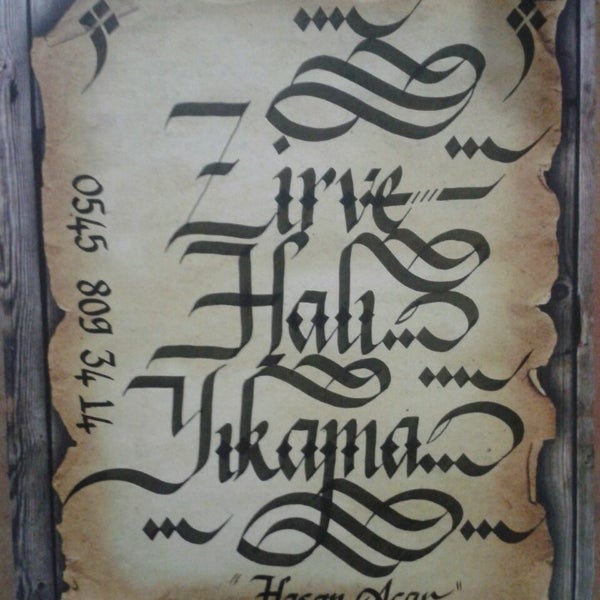 Zirve
Halı
Yıkama
0545 809 34 14
"Hasan Acar"